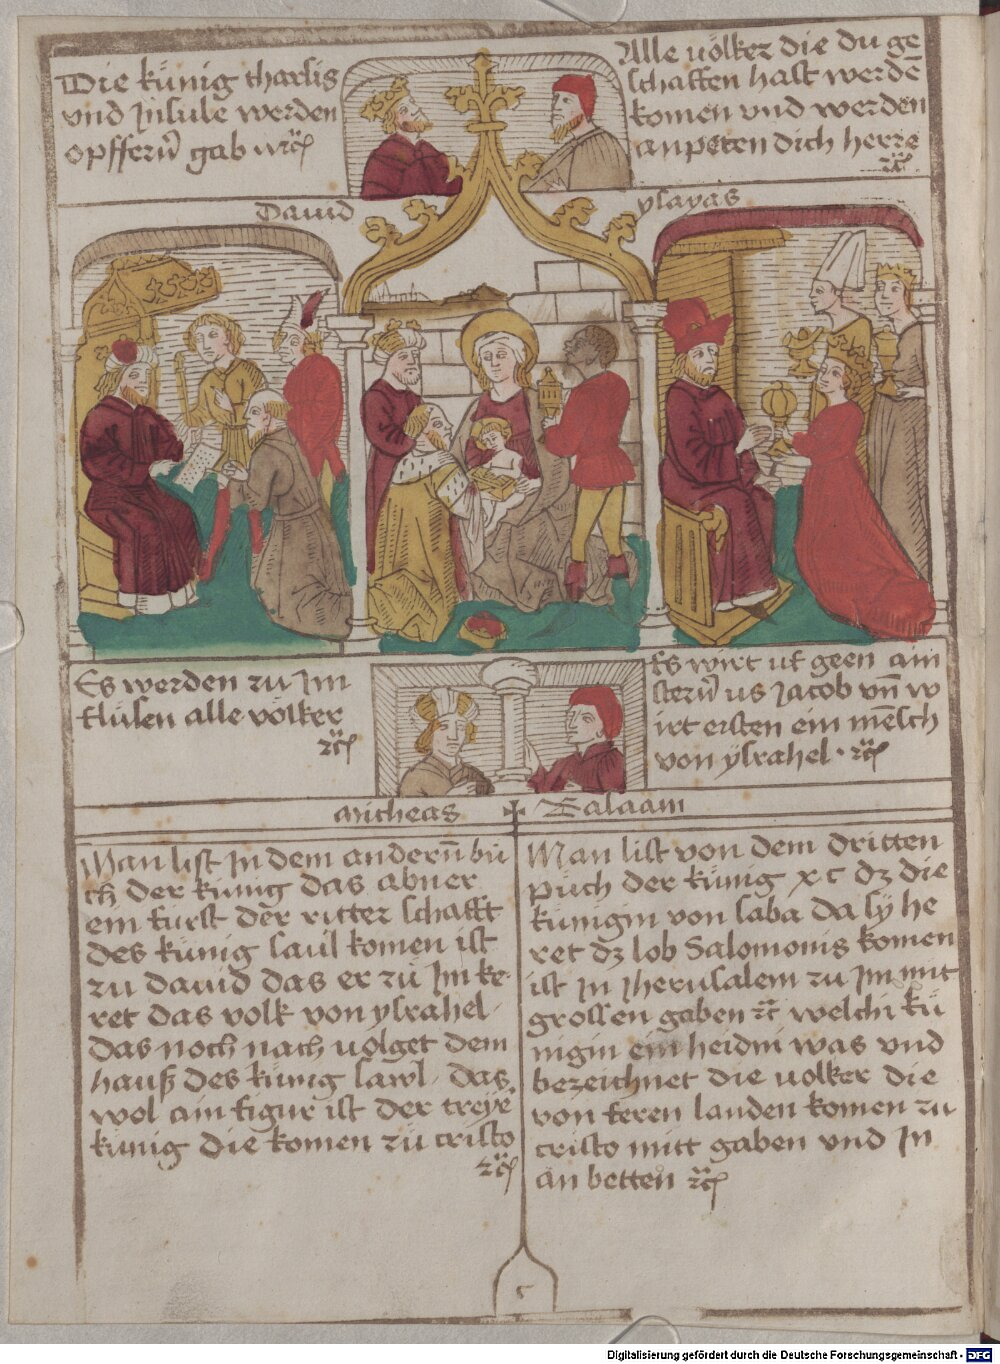 Die künig tharsis
vnd Jnsule werden
opffern̄ gab ⁊c̈
Alle völker die du ge
schaffen hast werdē
komen vnd werden
anpeten dich herre
⁊c̈
Dauid
ysayas
Es werden zu Jm
flüsen alle völker
⁊c̈
Es wirt uf geen ain
stern̄ us Jacob vn̄ w
irt ersten ein mēsch
von ysrahel · ⁊c̈
Micheas
Balaam
Man list Jn dem andern̄ bu
ch der künig das abner
ein furst der ritter schafft
des künig saul komen ist
zu dauid das er zü Jm ke-
ret das volk von ysrahel
das noch nach uolget dem
hauß des künig sawl · das
wol ain figur ist der treye
künig die komen zü cristo
⁊c̈
Man list von dem dritten
püch der künig x c dz die
künigin von saba da sy he
ret dz lob Salomonis komen
ist Jn Jherusalem zu Jm mit
grossen gaben ⁊c̈ welchi kü
nigin ein heidni was vnd
bezeichnet die uolker die
von feren landen komen zu
cristo mitt gaben vnd Jn
an betten ⁊c̈
Digitalisierung gefördert durch die Deutsche Forschungsgemeinschaft - DFG